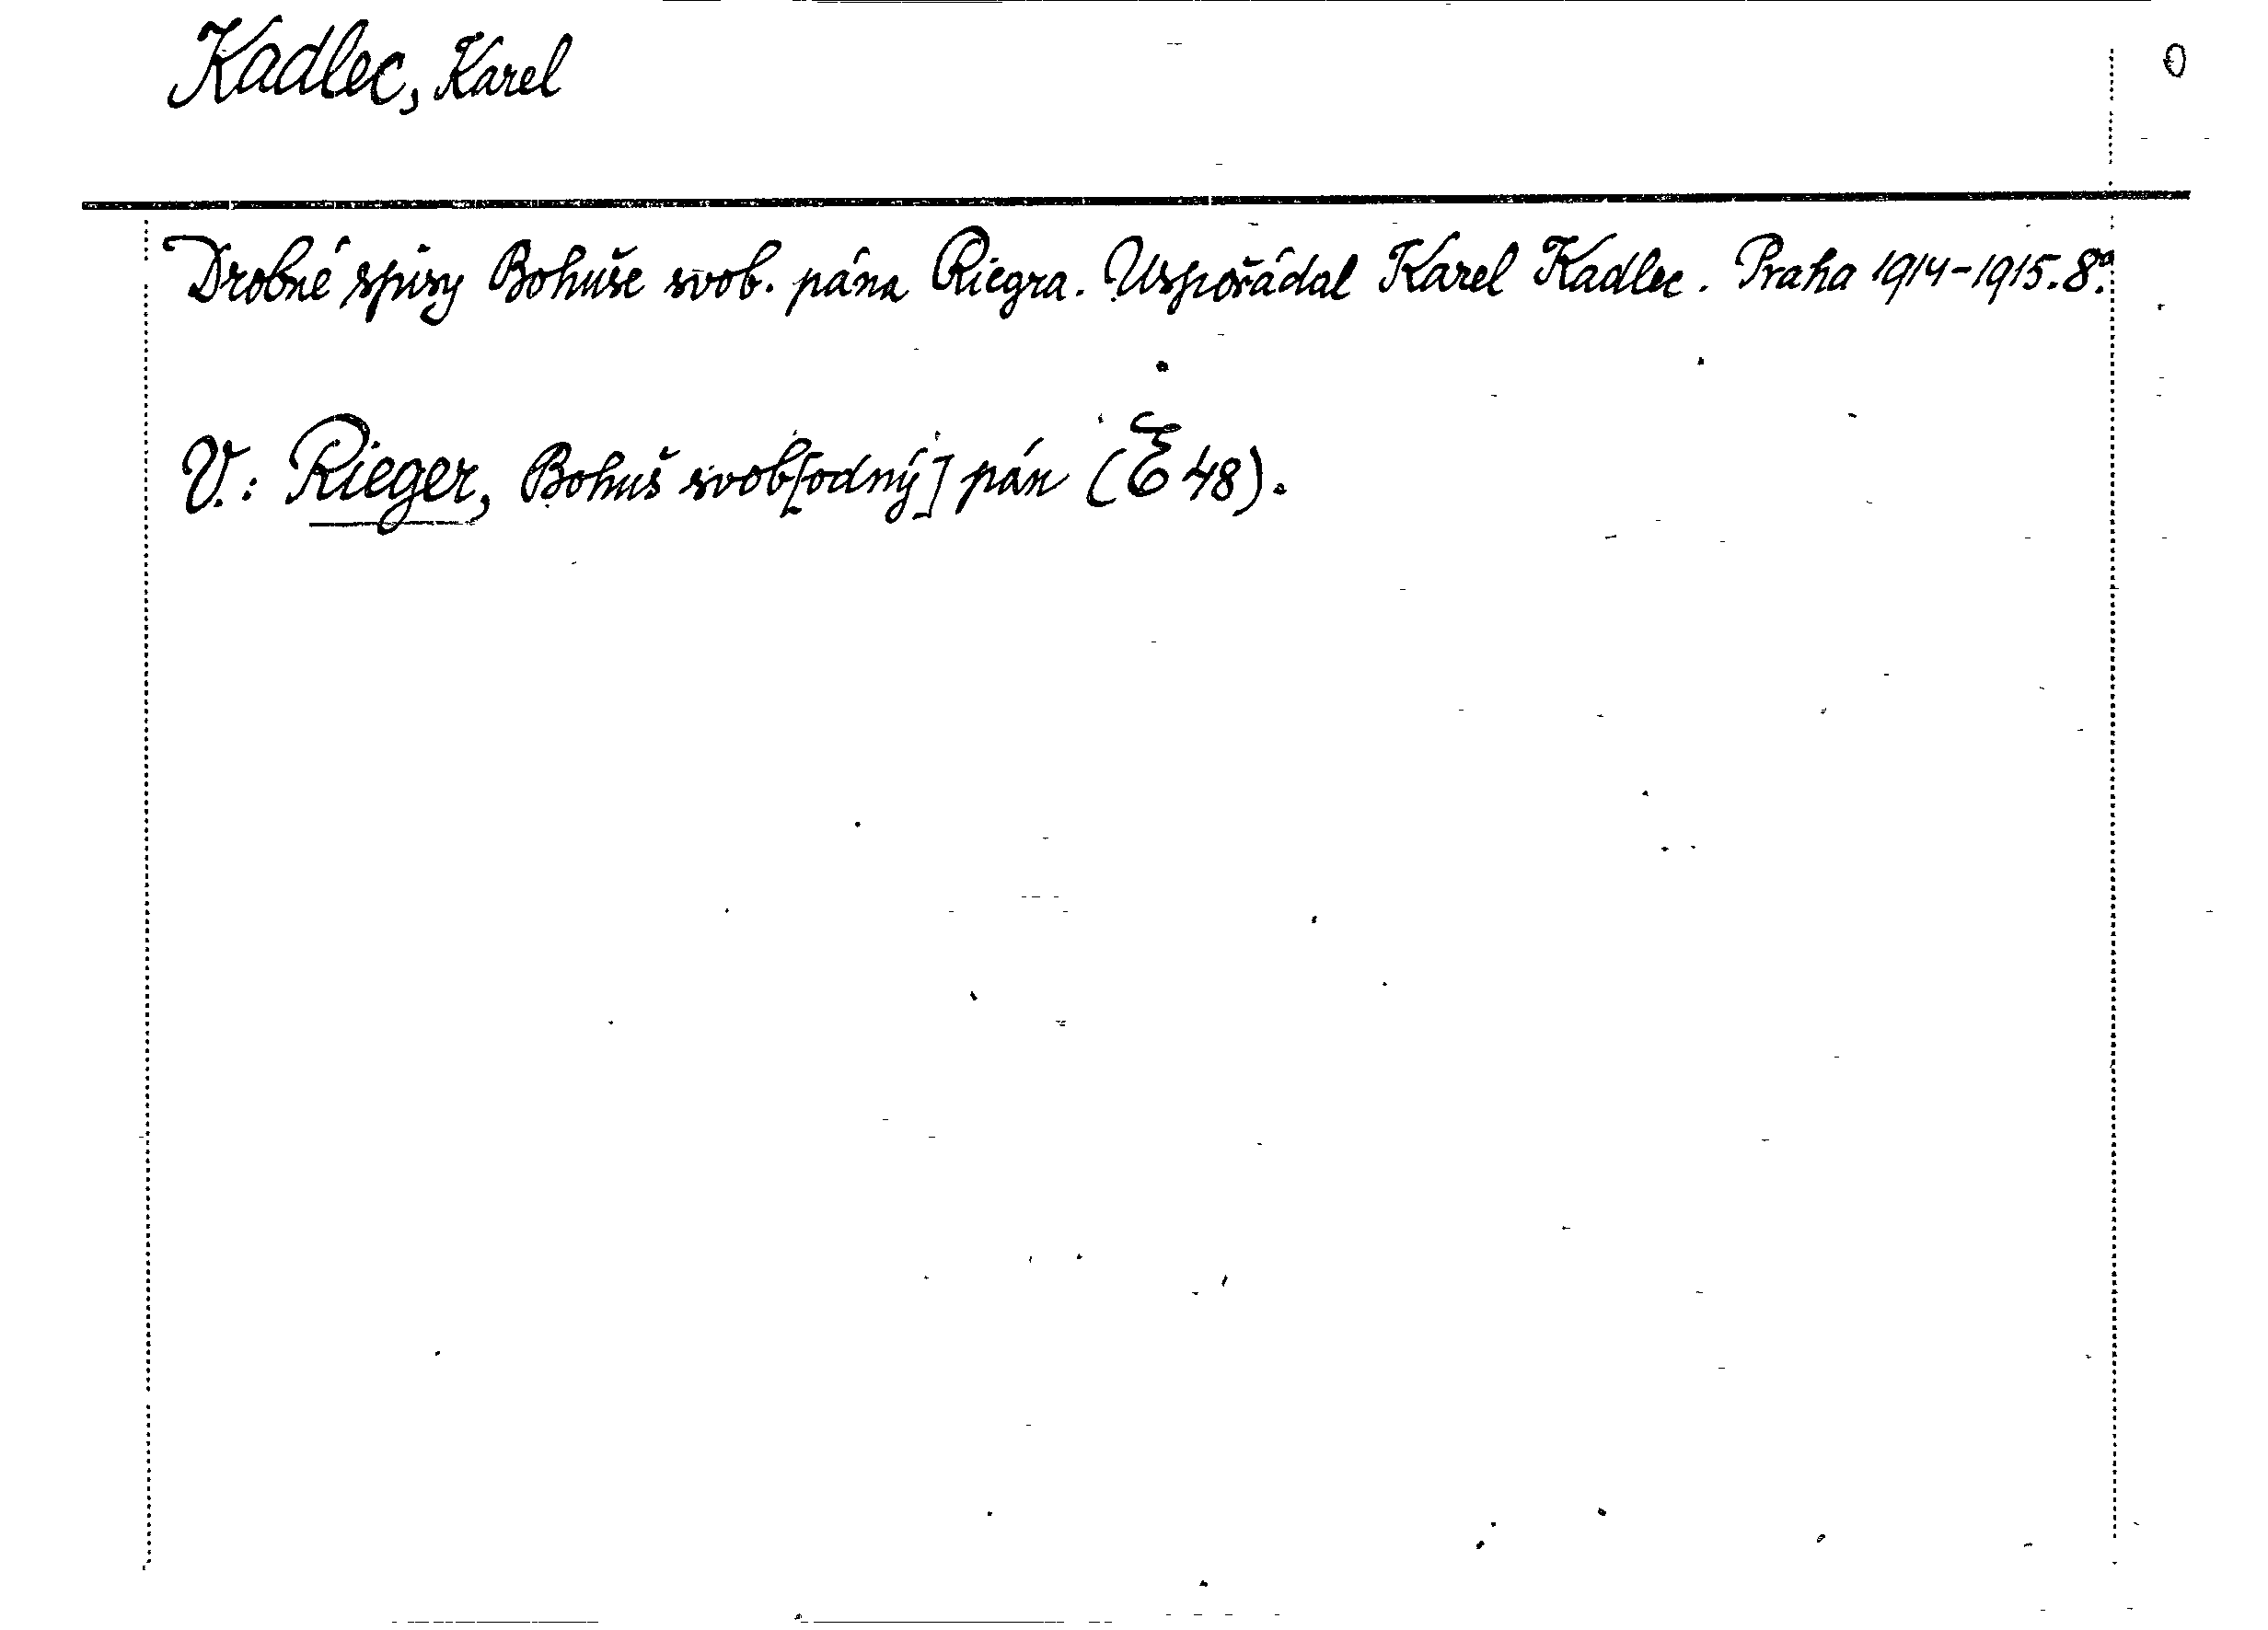 Kadlec, Karel
0
Drobné spisy Bohuše svob. pána Riegra. Uspořádal Karel Kadlec. Praha 1914-1915. 8º.
V.: Rieger, Bohuš svob[odný] pán (Č 48).